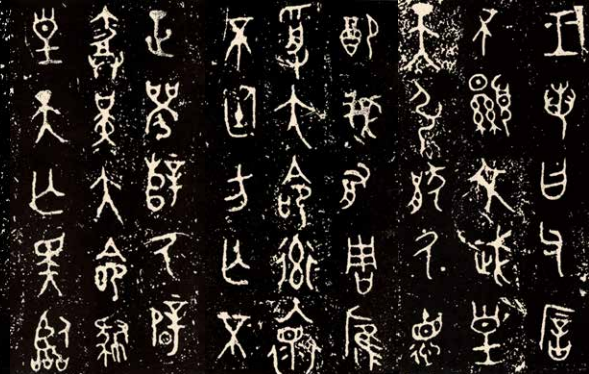 王若曰父㕌
不顯文武皇
天引猒氒德
配我有周膺
受大命率懷
不廷方亡不
正襄辥氒辟
勞堇大命肆
皇天亡斁臨